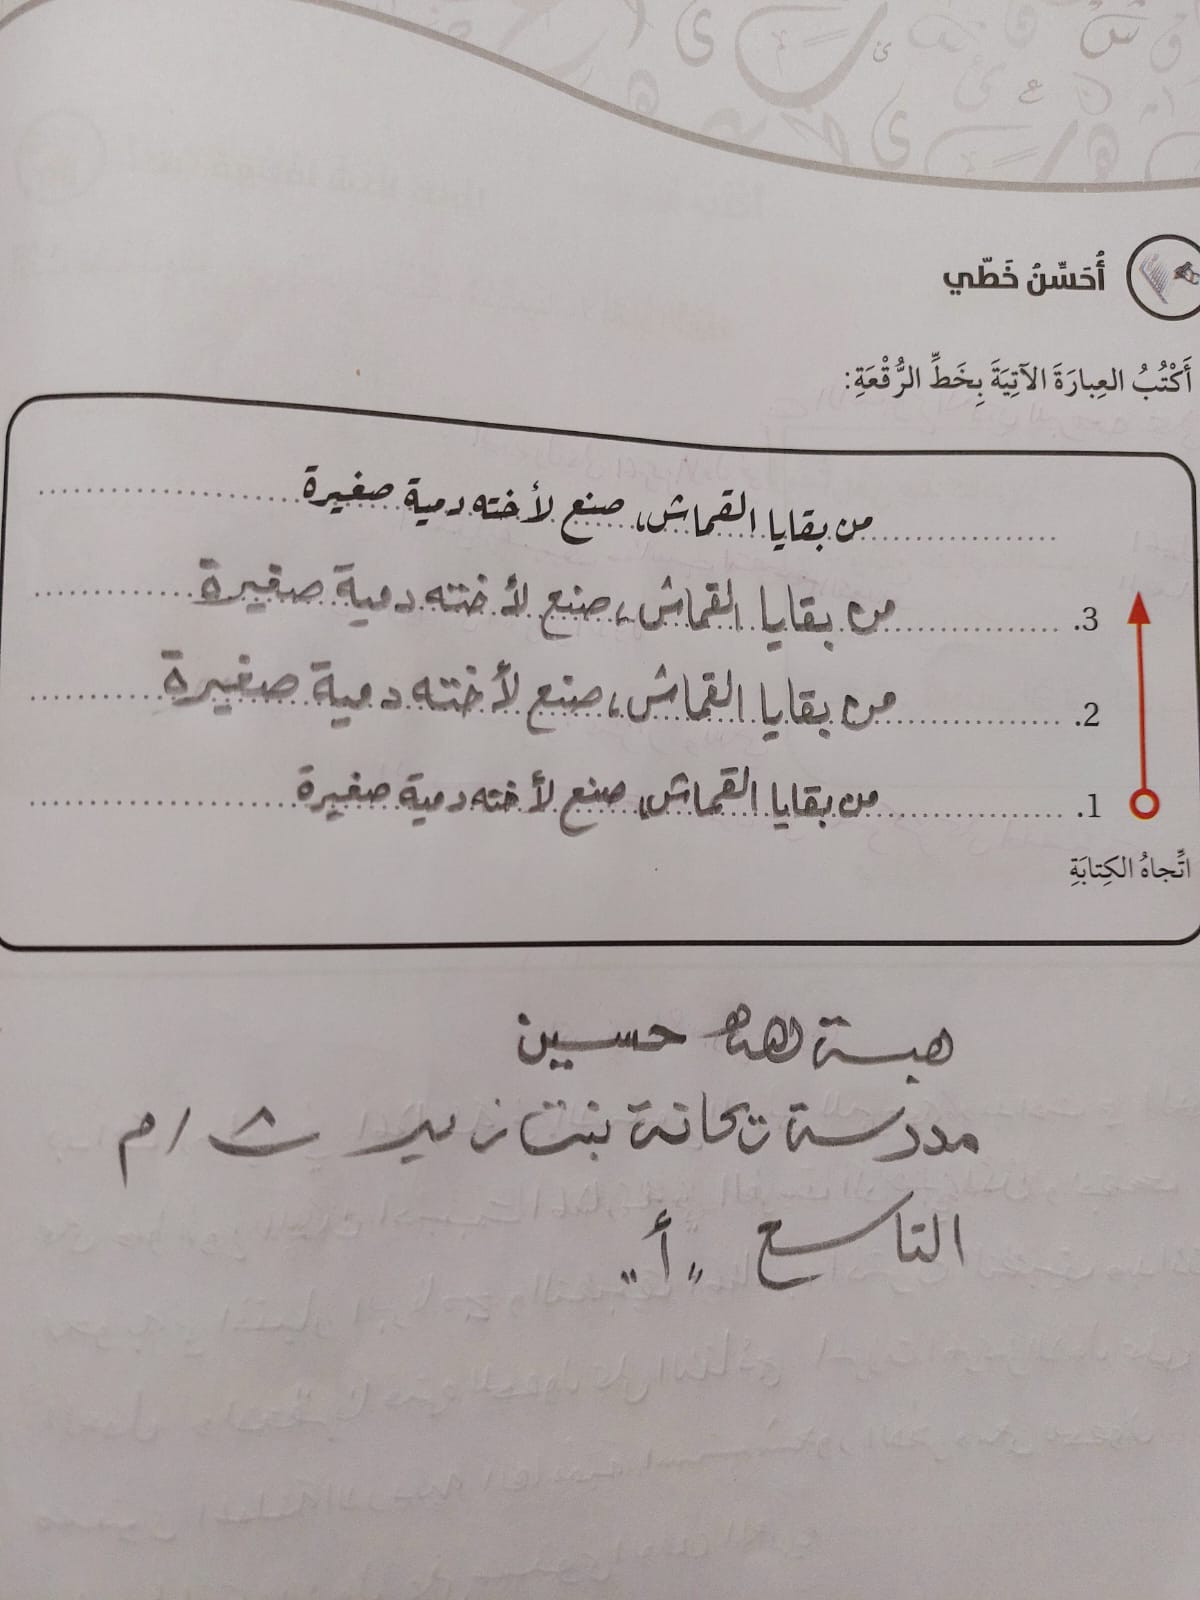 أُحَسِّنُ خَطّي
أَكْتُبُ العِبارَةَ الآتِيَةَ بِخَطِّ الرُّقْعَةِ:
من بقايا القماش، صنع لأخته دمية صغيرة
3. من بقايا القماش، صنع لأخته دمية صغيرة
2. من بقايا القماش، صنع لأخته دمية صغيرة
1. من بقايا القماش، صنع لأخته دمية صغيرة
اتِّجاهُ الكِتابَةِ
هبة حسين
مدرسة بنت ث / م
التاسع "أ"